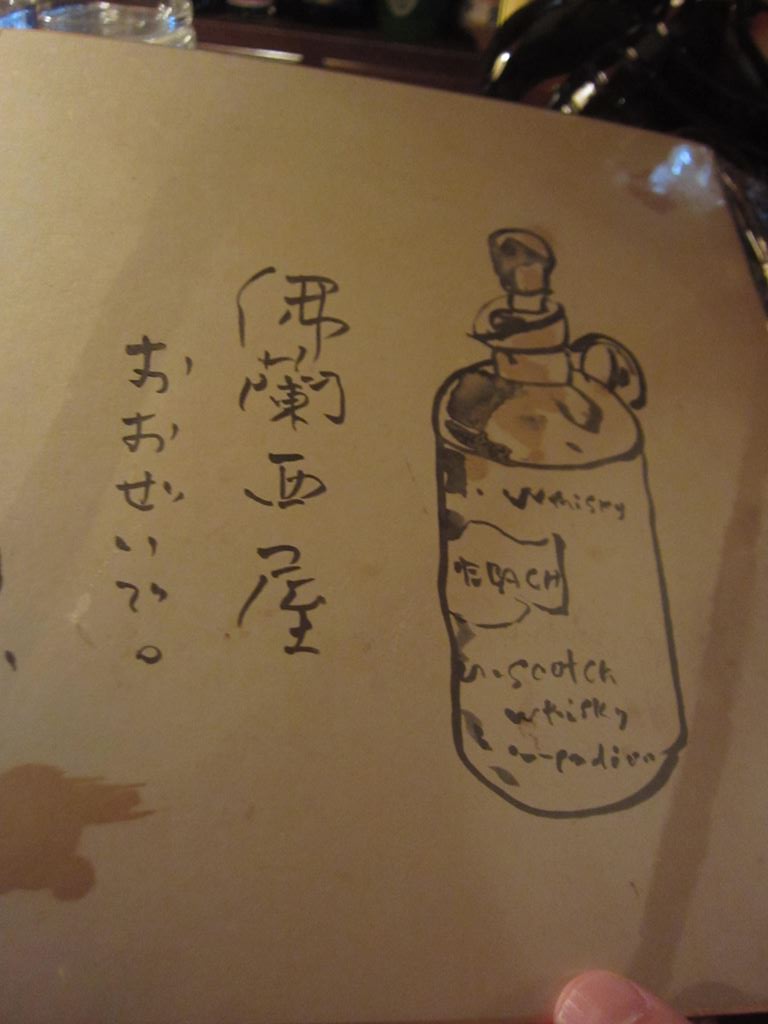 佛蘭西屋
おおぜいで。
Whisky
BACH
Scotch
Whisky